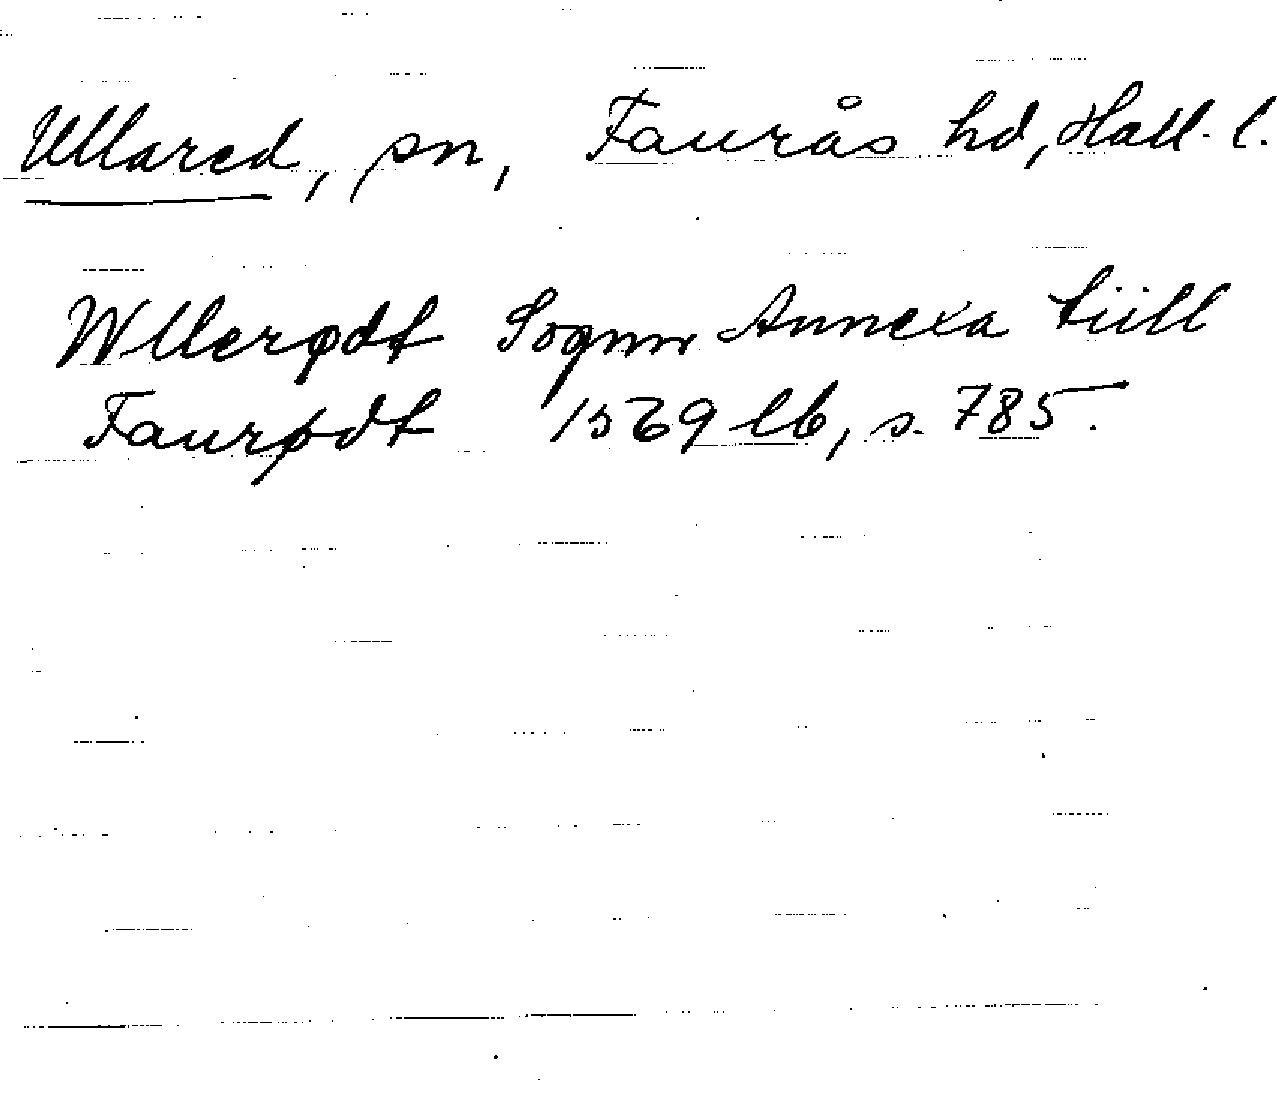 Ullared, sn, Faurås hd, Hall. l.
Wllerødt Sognn Annexa tiill
Faurødt 1569 lb, s. 785.